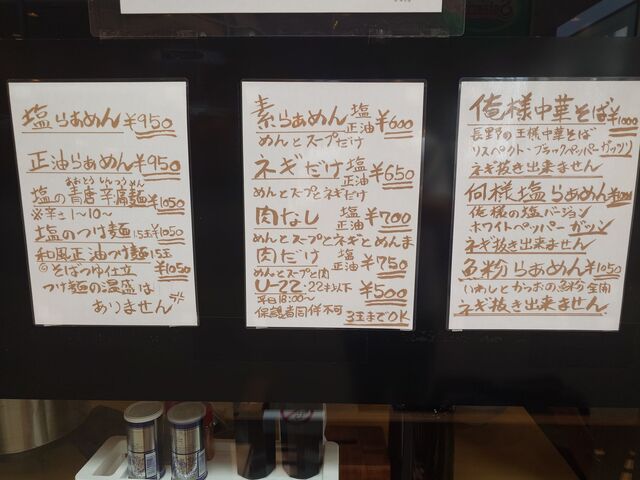 塩らぁめん ¥950
正油らぁめん ¥950
塩の青唐辛痛麺 ¥1050
※辛さ1~10~
塩のつけ麺 1.5玉 ¥1050
和風正油つけ麺 1.5玉
◎そばつゆ仕立 ¥1050
つけ麺の温盛は
ありません
素らぁめん 塩 正油 ¥600
めんとスープだけ
ネギだけ 塩 正油 ¥650
めんとスープとネギだけ
肉なし 塩 正油 ¥700
めんとスープとネギとめんま
肉だけ 塩 正油 ¥750
めんとスープと肉
U-22・22才以下 ¥500
平日18:00~
保護者同伴不可 3玉までOK
俺様中華そば ¥1000
長野の王様中華そば
リスペクト・ブラックペッパーガッツリ
ネギ抜き出来ません
何様塩らぁめん
俺様の塩バージョン
ホワイトペッパーガツン
ネギ抜き出来ません
魚粉らぁめん ¥1050
いわしとかつおの魚粉全開
ネギ抜き出来ません